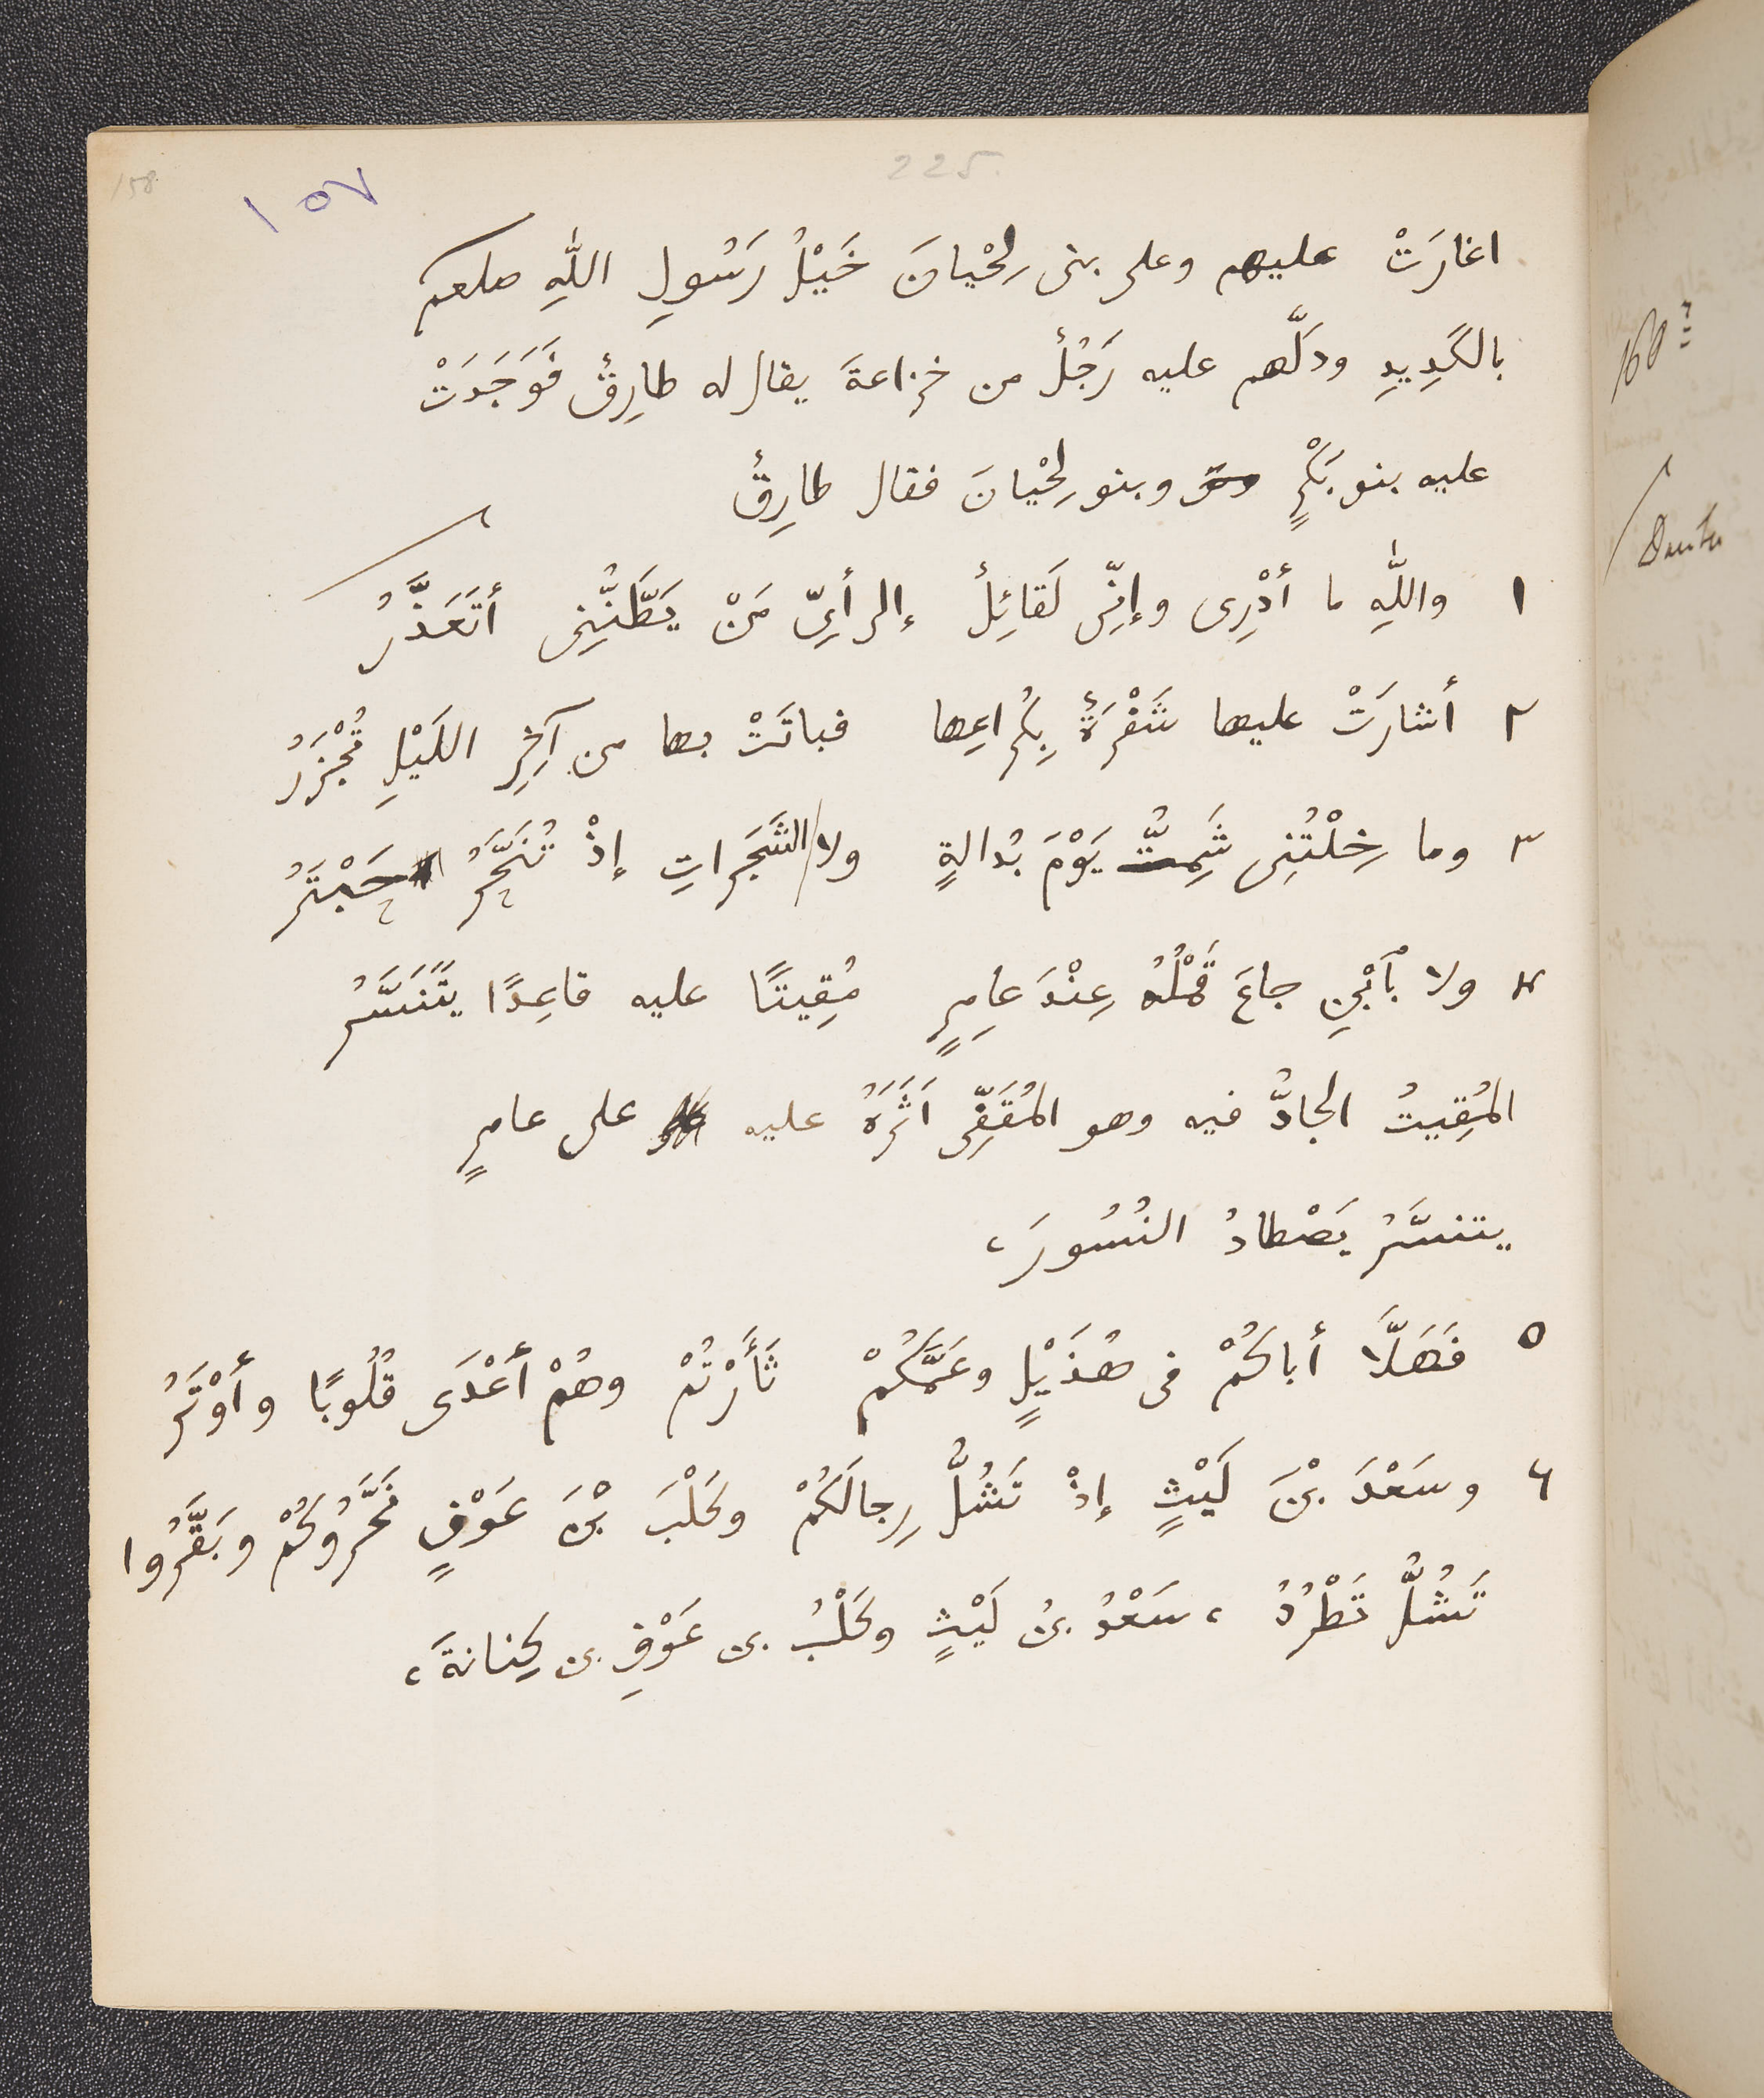 225.
158
١٥٧
اغارَتْ عليهم وعلى بنى لِحْيانَ خَيْلُ رَسُولِ اللّٰهِ صلعم
بالكَدِيدِ ودَلَّهم عليه رَجُلٌ من خزاعةَ يقال له طارِقٌ فَوَجَدَتْ
عليه بنو بَكْرٍ وبنو لِحْيانَ فقال طارِقٌ
١ واللّٰهِ ما أَدْرِى وإنِّى لَقائِلٌ إلى أىِّ مَنْ يَظَّنُّنِى أتَعَذَّرُ
٢ أشارَتْ عليها شَفْرَةٌ بِكُراعِها فباتَتْ بها من آخِرِ اللَيْلِ تُجْزَرُ
٣ وما خِلْتُنِى شَمِتُّ يَوْمَ بُدالةٍ ولا الشَجَراتِ إذْ تُنَحَّرُ حَبْتَرُ
٤ ولا بٱبْنِ جاعَ قَمْلُهُ عِنْدَ عامِرٍ مُقِيتًا عليه قاعِدًا يَتَنَسَّرُ
المُقِيتُ الجادُّ فيه وهو المُقَفِّى اَثَرَهُ عليه على عامرٍ
يتنسَّرُ يَصْطادُ النُسُورَ،
٥ فَهَلَّا أباكُمْ فى هُذَيْلٍ وعَمَّكُمْ ثَأَرْتُمْ وهُمْ أَعْدَى قُلُوبًا وأَوْتَرُ
٦ وسَعْدَ بْنَ لَيْثٍ إذْ تَشُلُّ رِجالَكُمْ وكَلْبَ بْنَ عَوْفٍ نَحَّرُوكُمْ وبَقَّرُوا
تَشُلُّ تَطْرُدُ ، سَعْدُ بنُ لَيْثٍ وكَلْبُ بن عَوْفِ بن كِنانةَ،